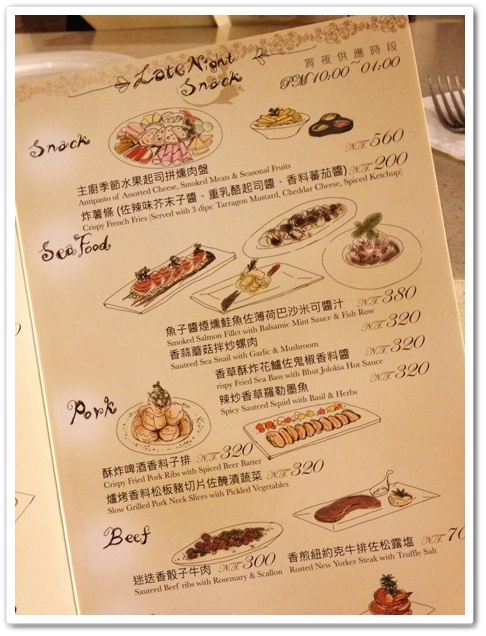 Late Night
Snack
宵夜供應時段
PM 10:00~01:00
Snack
主廚季節水果起司拼燻肉盤 NT.560
Antipasto of Assorted Cheese, Smoked Meats & Seasonal Fruits
炸薯條 (佐辣味芥末子醬、重乳酪起司醬、香料蕃茄醬) NT.200
Crispy French Fries (Served with 3 dips: Tarragon Mustard, Cheddar Cheese, Spiced Ketchup)
Sea Food
魚子醬煙燻鮭魚佐薄荷巴沙米可醬汁 NT.380
Smoked Salmon Fillet with Balsamic Mint Sauce & Fish Row
香蒜蘑菇拌炒螺肉 NT.320
Sauteed Sea Snail with Garlic & Mushroom
香草酥炸花鱸佐鬼椒香料醬 NT.320
rispy Fried Sea Bass with Bhut Jolokia Hot Sauce
辣炒香草羅勒墨魚 NT.320
Spicy Sauteed Squid with Basil & Herbs
Pork
酥炸啤酒香料子排 NT.320
Crispy Fried Pork Ribs with Spiced Beer Batter
爐烤香料松板豬切片佐醃漬蔬菜 NT.320
Slow Grilled Pork Neck Slices with Pickled Vegetables
Beef
迷迭香骰子牛肉 NT.300
Sauteed Beef ribs with Rosemary & Scallon
香煎紐約克牛排佐松露塩 NT.70
Rosted New Yorker Steak with Truffle Salt